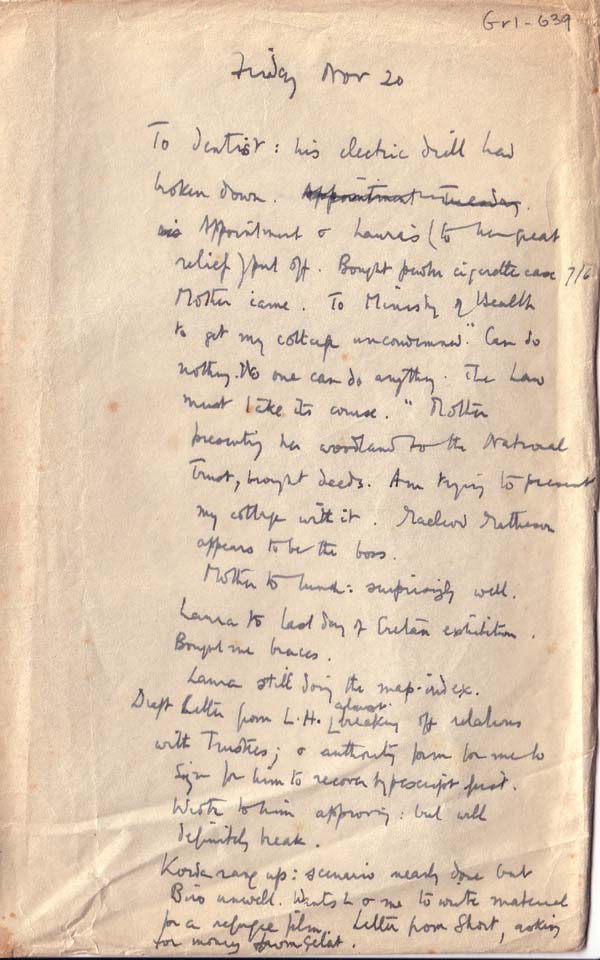 Gr1-639
Friday Nov 20
To dentist: his electric drill had
broken down. Appointment Tuesday.
Appointment & Laura's (to her great
relief) put off. Bought pewter cigarette case 7/6
Mother came. To Ministry of Health
to get my cottage uncondemned. "Can do
nothing. No one can do anything. The Law
must take its course." Mother
presenting her woodland to the National
Trust, brought deeds. Am trying to present
my cottage with it. Macleod Matheson
appears to be the boss.
Mother to lunch: surprisingly well.
Laura to last day of Cretan exhibition.
Bought me braces.
Laura still doing the map-index.
Draft Letter from L.H. almost breaking off relations
with Trustees; & authority form for me to
sign for him to recover typescript first.
Wrote to him approving: but will
definitely break.
Korda rang up: scenario nearly done but
Biro unwell. Wants L & me to write material
for a refugee film. Letter from Short, asking
for money from Gelat.